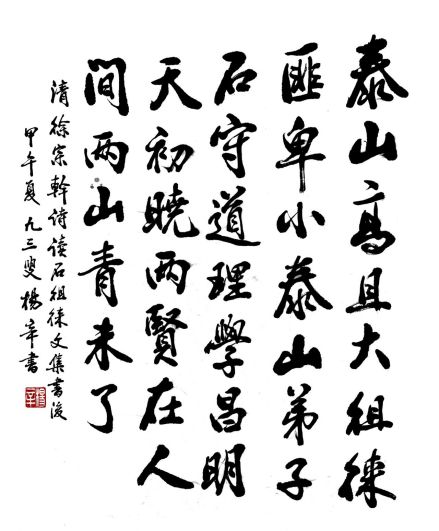 泰山高且大徂徕
匪卑小泰山弟子
石守道理學昌明
天初曉两賢在人
間两山青未了
清徐宗幹诗读石徂徕文集書後
甲午夏九三叟楊辛書